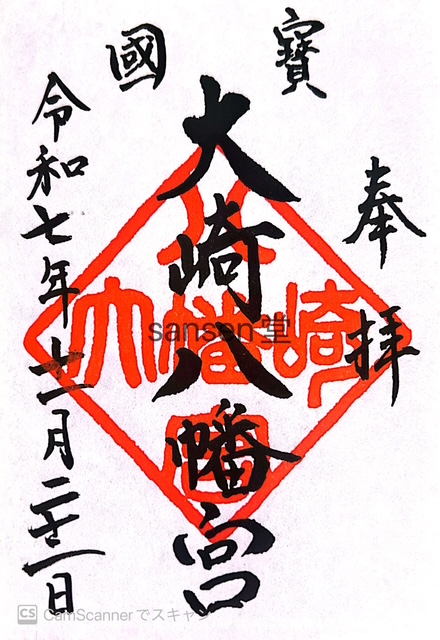 奉拝
寶
國
大崎八幡宮
令和七年十一月二十二日
大崎八幡宮
sansen堂
CS CamScannerでスキャン